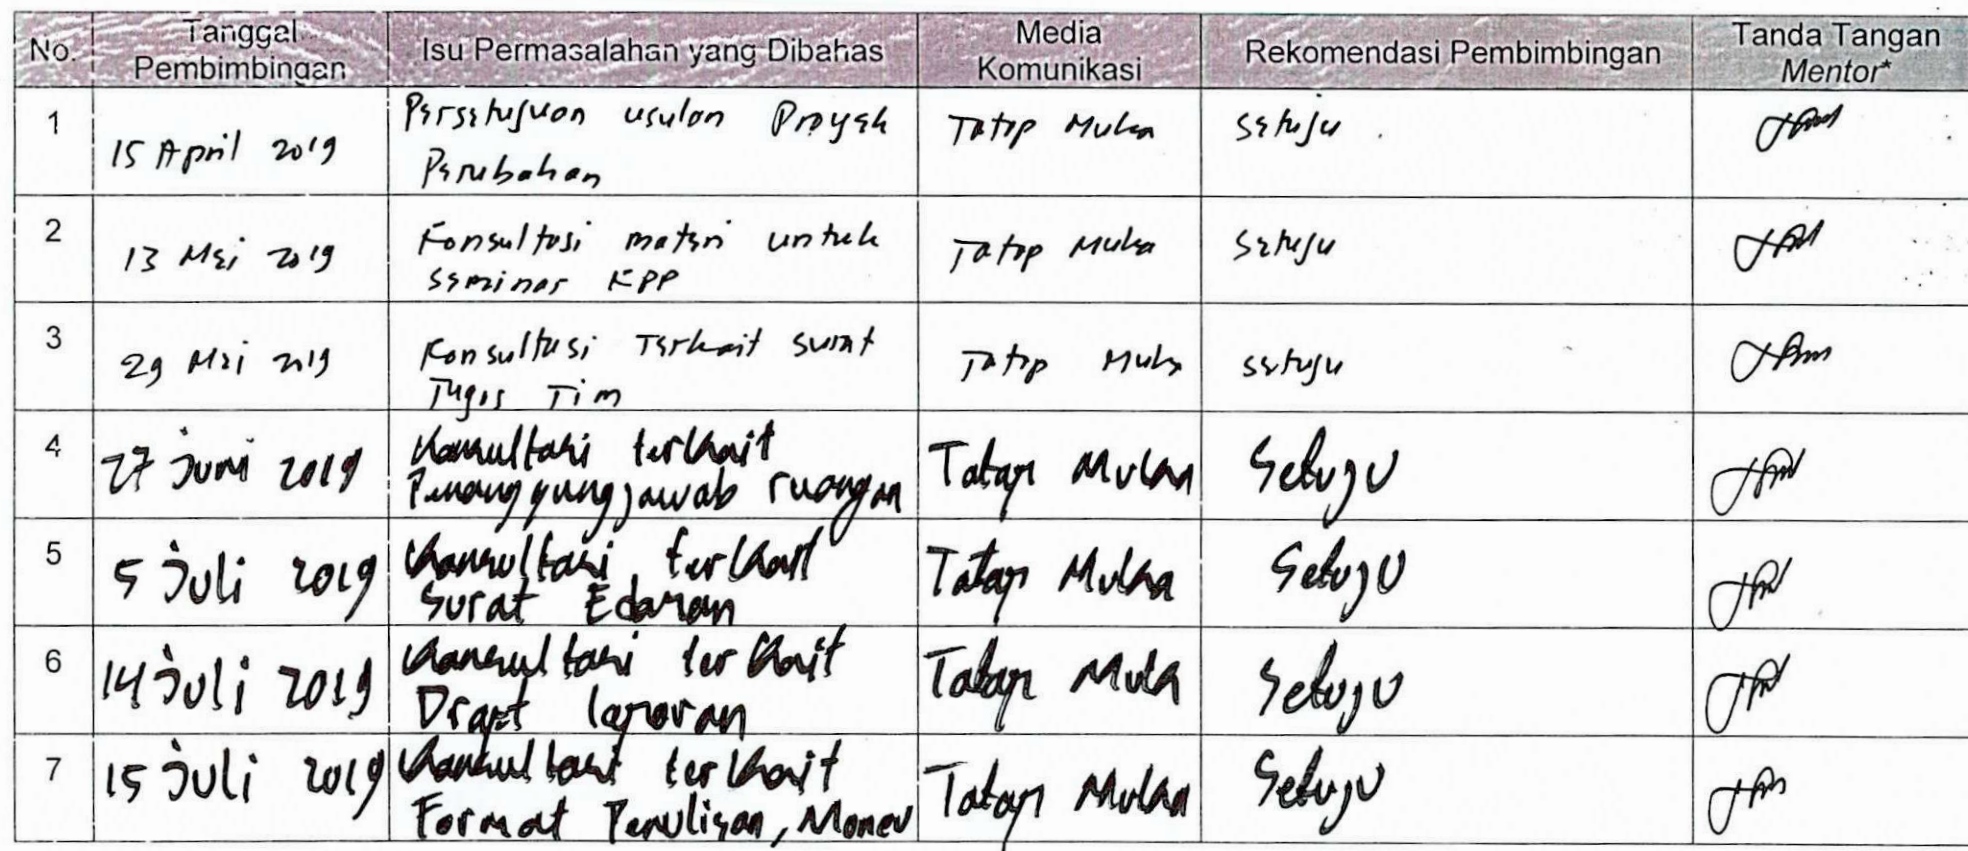 No. Tanggal Pembimbingan Isu Permasalahan yang Dibahas Media Komunikasi Rekomendasi Pembimbingan Tanda Tangan Mentor*
1 15 April 2019 Persetujuan usulan Proyek Perubahan Tatap Muka setuju
2 13 Mei 2019 Konsultasi materi untuk seminar KPP Tatap Muka setuju
3 29 Mei 2019 Konsultasi Terkait surat Tugas Tim Tatap Muka setuju
4 27 Juni 2019 Konsultasi terkait Penanggungjawab ruangan Tatap Muka Setuju
5 5 Juli 2019 Konsultasi terkait Surat Edaran Tatap Muka Setuju
6 14 Juli 2019 Konsultasi terkait Draft laporan Tatap Muka Setuju
7 15 Juli 2019 Konsultasi terkait Format Penulisan, Monev Tatap Muka Setuju